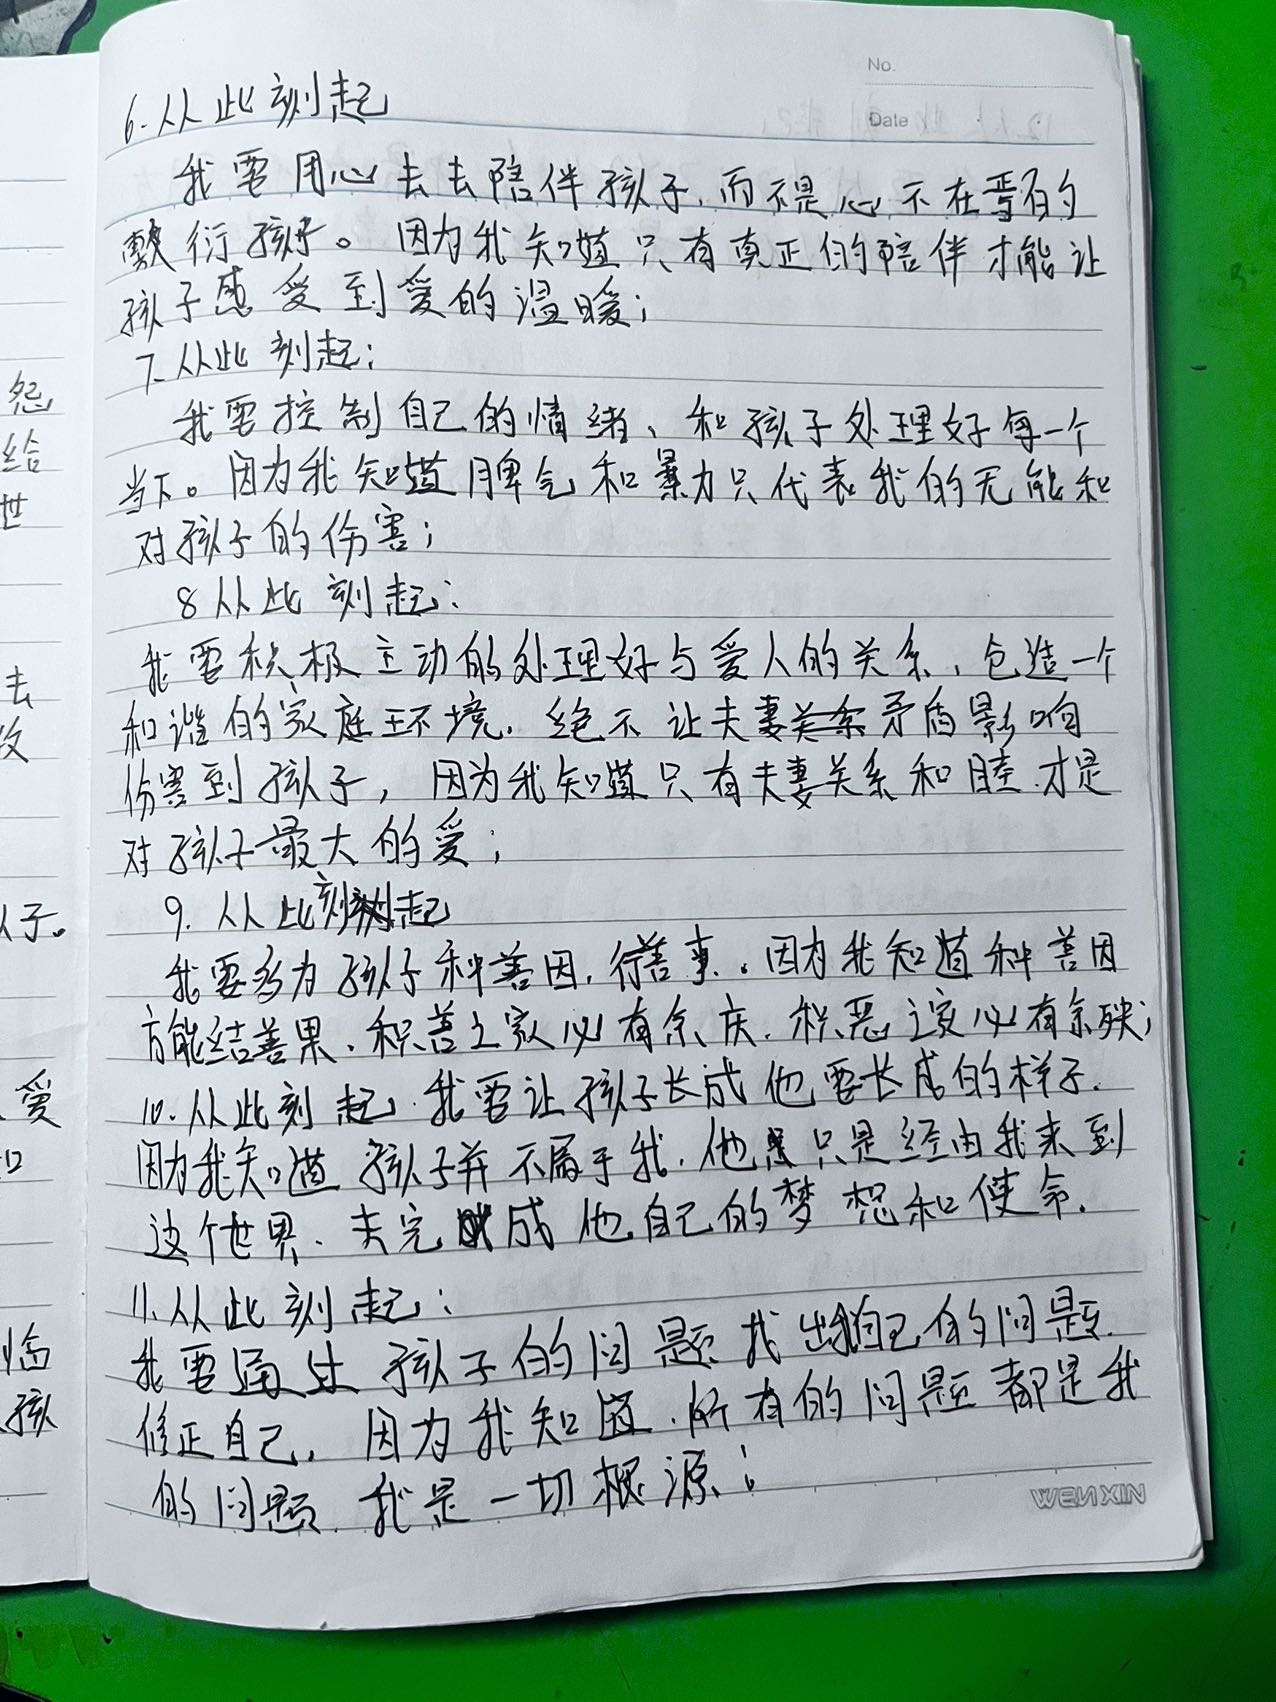 No.
Date
6.从此刻起
我要用心去去陪伴孩子,而不是心不在焉的
敷衍孩子。因为我知道只有真正的陪伴才能让
孩子感受到爱的温暖;
7.从此刻起:
我要控制自己的情绪、和孩子处理好每一个
当下。因为我知道脾气和暴力只代表我的无能和
对孩子的伤害;
8从此刻起:
我要积极主动的处理好与爱人的关系,创造一个
和谐的家庭环境.绝不让夫妻矛盾影响
伤害到孩子,因为我知道只有夫妻关系和睦才是
对孩子最大的爱;
9.从此刻起
我要多为孩子种善因,行善事.因为我知道种善因
方能结善果、积善之家必有余庆.积恶之家必有余殃;
10.从此刻起.我要让孩子长成他要长成的样子.
因为我知道孩子并不属于我,他只是经由我来到
这个世界、去完成他自己的梦想和使命.
11.从此刻起:
我要通过孩子的问题找出自己的问题.
修正自己,因为我知道.所有的问题都是我
的问题.我是一切根源;
WENXIN
怨
给
世
去
孩子。
爱
临
孩